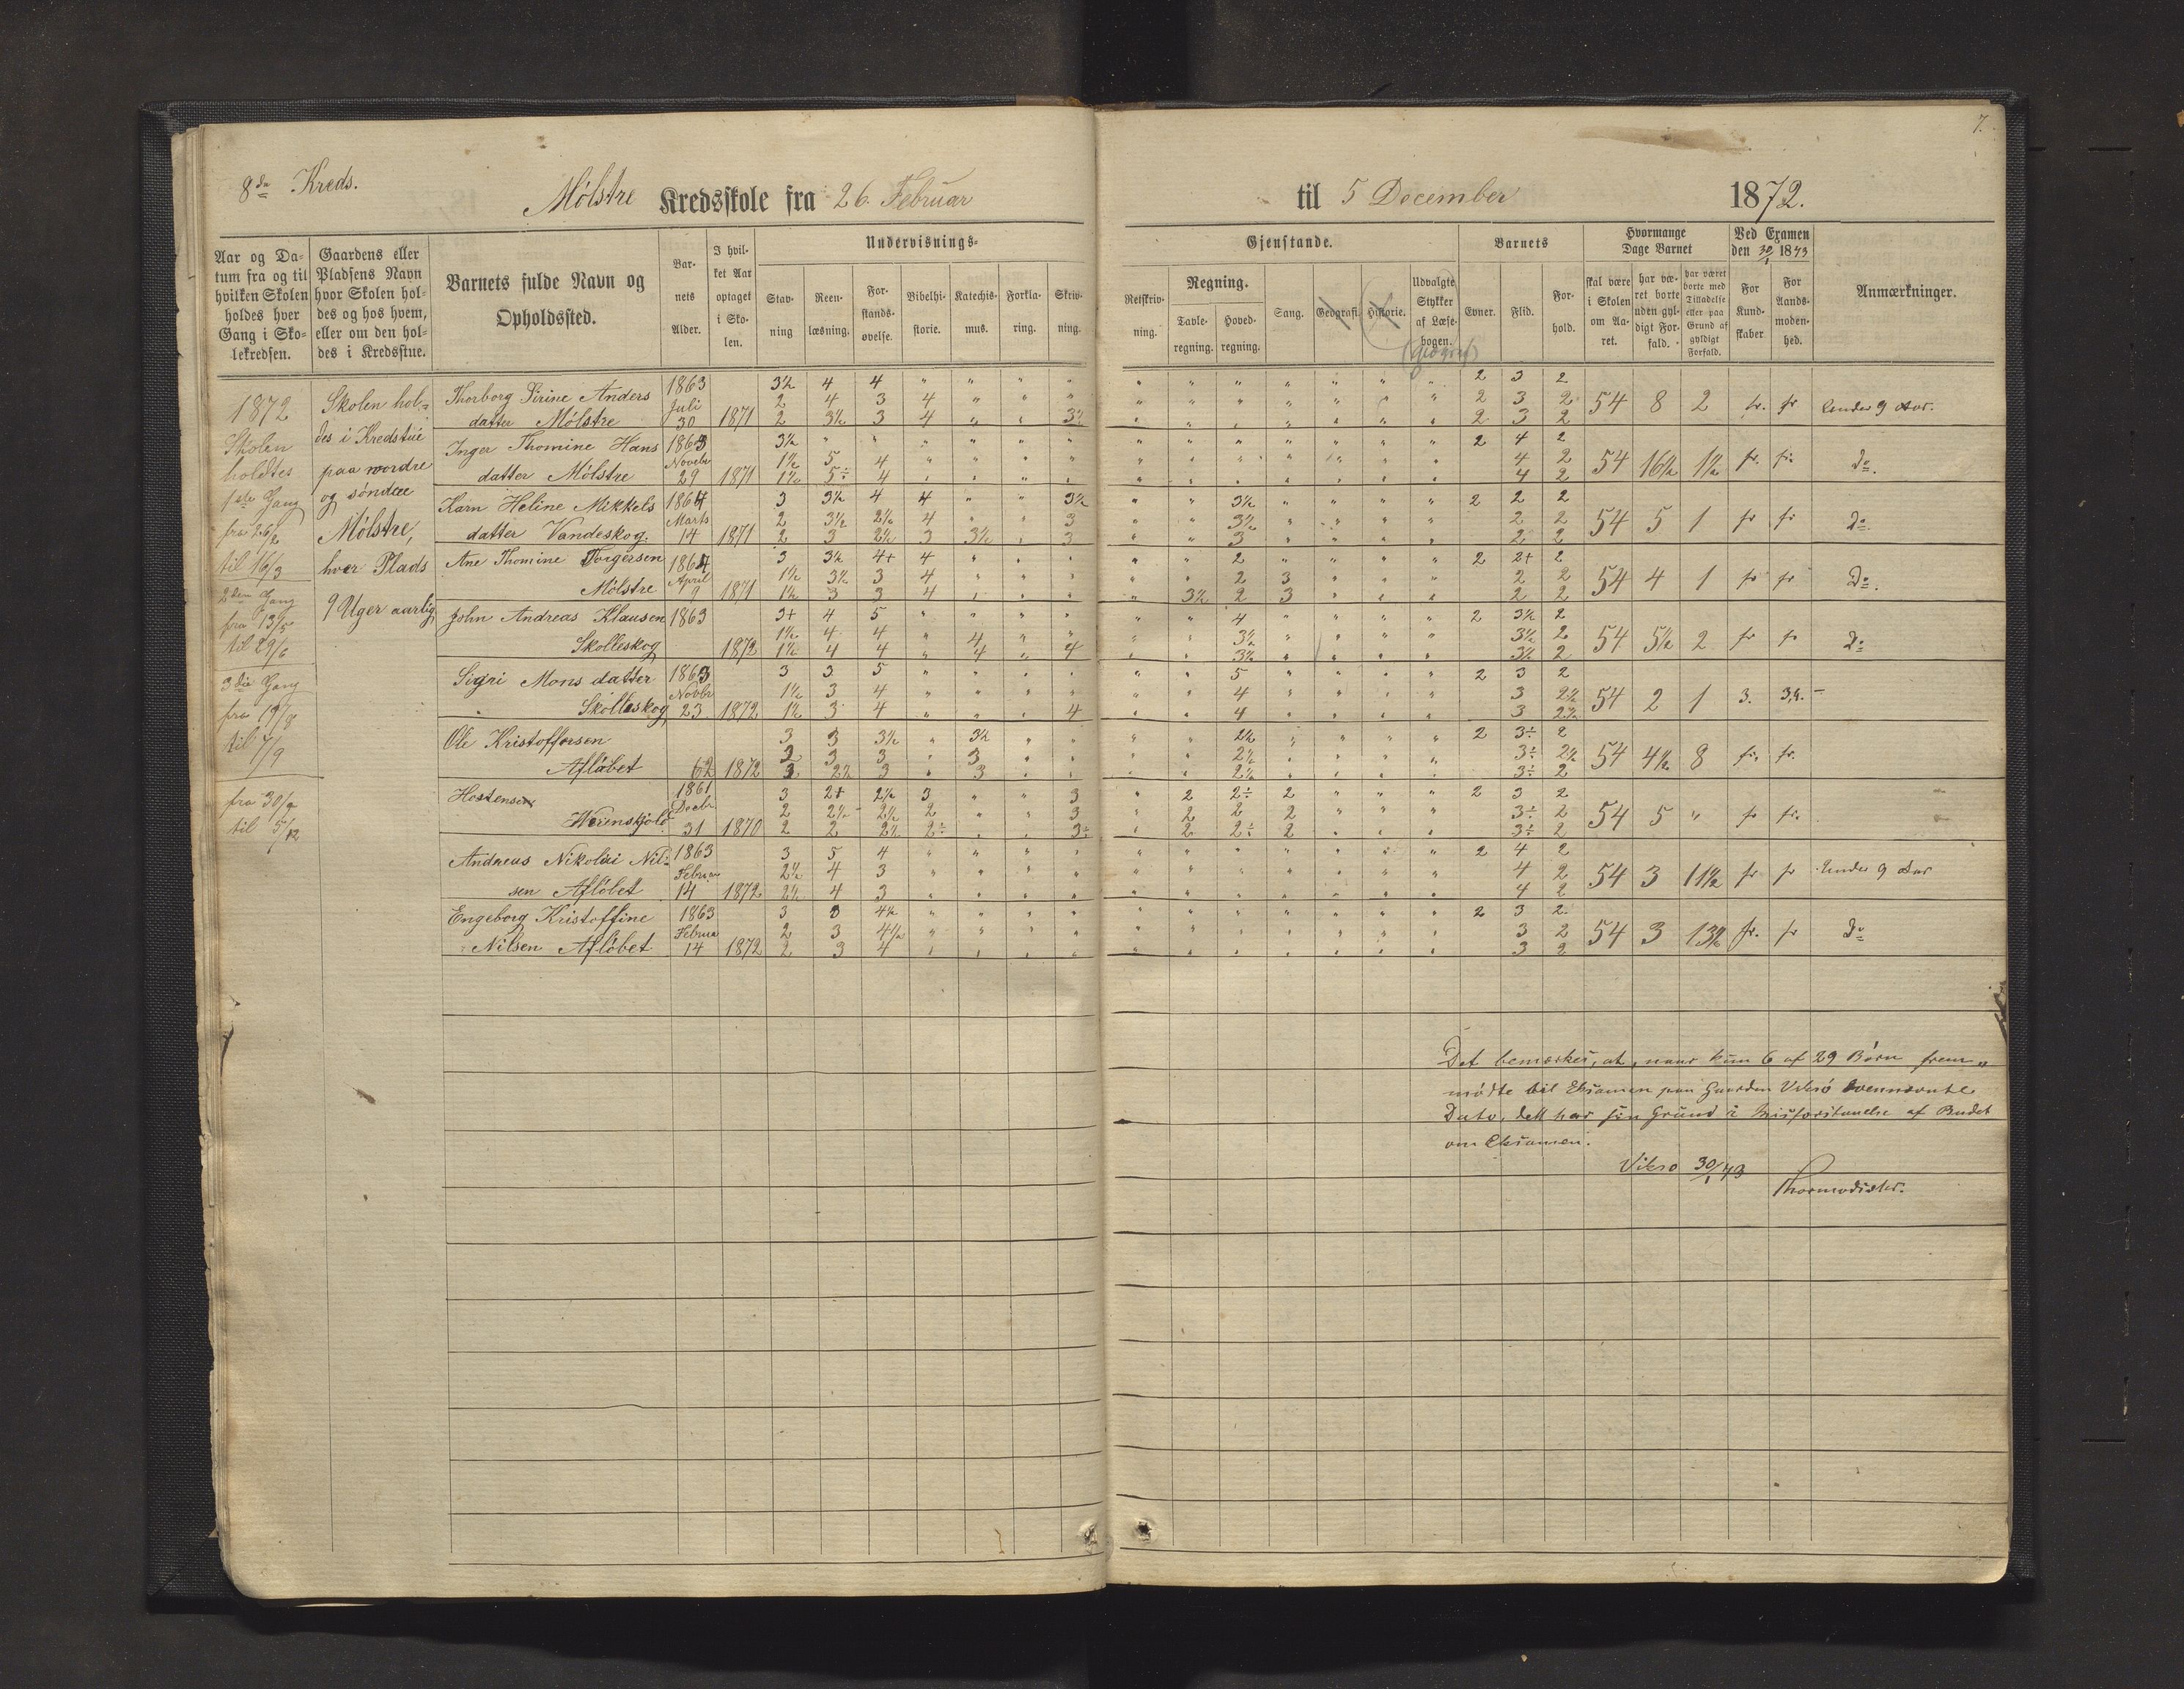 7.
8de Kreds.
Mølstre Kredsskole fra 26. Februar til 5 December 1872.
Aar og Datum fra og til hvilken Skolen holdes hver Gang i Skolekredsen.
Gaardens eller Pladsens Navn hvor Skolen holdes og hos hvem, eller om den holdes i Kredsstue.
Barnets fulde Navn og Opholdssted.
Barnets Alder.
I hvilket Aar optaget i Skolen.
Undervisnings-Gjenstande.
Stavning
Reenlæsning.
Forstandsøvelse.
Bibelhistorie.
Katechismus.
Forklaring.
Skrivning.
Retskrivning.
Regning.
Tavleregning.
Hovedregning.
Sang.
Geografi.
Historie.
Udvalgte Stykker af Læsebogen.
(Geograf)
Barnets
Evner.
Flid.
Forhold.
Hvormange Dage Barnet
skal være i Skolen om Aaret.
har været borte uden gyldigt Forfald.
har været borte med Tilladelse eller paa Grund af gyldigt Forfald.
Ved Examen den 30/1 1873
For Kundskaber
For Aandsmodenhed.
Anmærkninger.
1872
Skolen
holdtes
1ste Gang
fra 26/2
til 16/3
2den Gang
fra 13/5
til 29/6
3die Gang
fra 19/8
til 7/9
fra 30/9
til 5/12
Skolen hol-
des i Kredstue
paa nordre
og søndre
Mølstre,
hver Plads
9 Uger aarlig
Thorborg Sirine Anders 1863 3½ 4 4 2 3 2
Juli 2 4 3 4 2 3 2 54 8 2 fr. fr Under 9 Aar.
datter Mølstre 30 1871 2 3½ 3 4 3÷ 2 3 2
Inger Thomine Hans 1863 3½ 2 4 2
Novebr 1½ 5 4 4 2 54 16½ 1½ fr. fr. do.
datter Mølstre 29 1871 1½ 5÷ 4 4 2
Karn Heline Mikkels 1864 3 3½ 4 4 3½ 3½ 2 2 2
Marts 2 3½ 2½ 4 3 3½ 2 2 54 5 1 fr fr do.
datter Vandeskog. 14 1871 2 3 2½ 3 3½ 3 3 2 2
Ane Thomine Torgersen 1864 3 3½ 4+ 4 2 2 2+ 2
April 1½ 3½ 3 4 2 3 2 2 54 4 1 fr fr Do.
Mølstre 9 1871 1½ 3 3 4 3½ 2 3 2 2
John Andreas Klausen 1863 3+ 4 5 4 2 3½ 2
1½ 4 4 4 3½ 3½ 2 54 5½ 2 fr fr do
Skolleskog 1872 1½ 4 4 4 4 3½ 3½ 2
Sigri Mons datter 1863 3 3 5 5 2 3 2
Novbr 1½ 3 4 4 3 2½ 54 2 1 3. 3,4.
Skolleskog 23 1872 1½ 3 4 4 4 3 2½
Ole Kristoffersen 3 3 3½ 3½ 2½ 2 3÷ 2
2 3 3 3 2½ 3÷ 2½ 54 4½ 8 fr. fr.
Afløbet 62 1872 3 2½ 3 3 2½ 3÷ 2
Hostensen 1861 3 2+ 2½ 3 3 2 2÷ 2 2 3 2
Decbr 2 2½ 2½ 2 3 2 2 2 3÷ 2 54 5 fr fr.
Werenskjold 31 1870 2 2 2½ 2÷ 3÷ 2 2÷ 2 3÷ 2
Andreas Nikolai Nil- 1863 3 5 4 2 4 2
Februar 2½ 4 3 4 2 54 3 11½ fr fr Under 9 Aar
sen Afløbet 14 1872 2½ 4 3 4 2
Engeborg Kristoffine 1863 3 3 4½ 2 3 2
Februa 2 3 4½ 3 2 54 3 13½ fr. fr do
Nilsen Afløbet 14 1872 2 3 4 3 2
Det bemærkes, at, naar kun 6 af 29 Børn frem-
mødte til Eksamen paa Gaarden Viksø ovennævnte
Dato, dett har sin Grund i Misforstaaelse af Budet
om Eksamen.
Viksø 30/1 73
Thormodsæter.